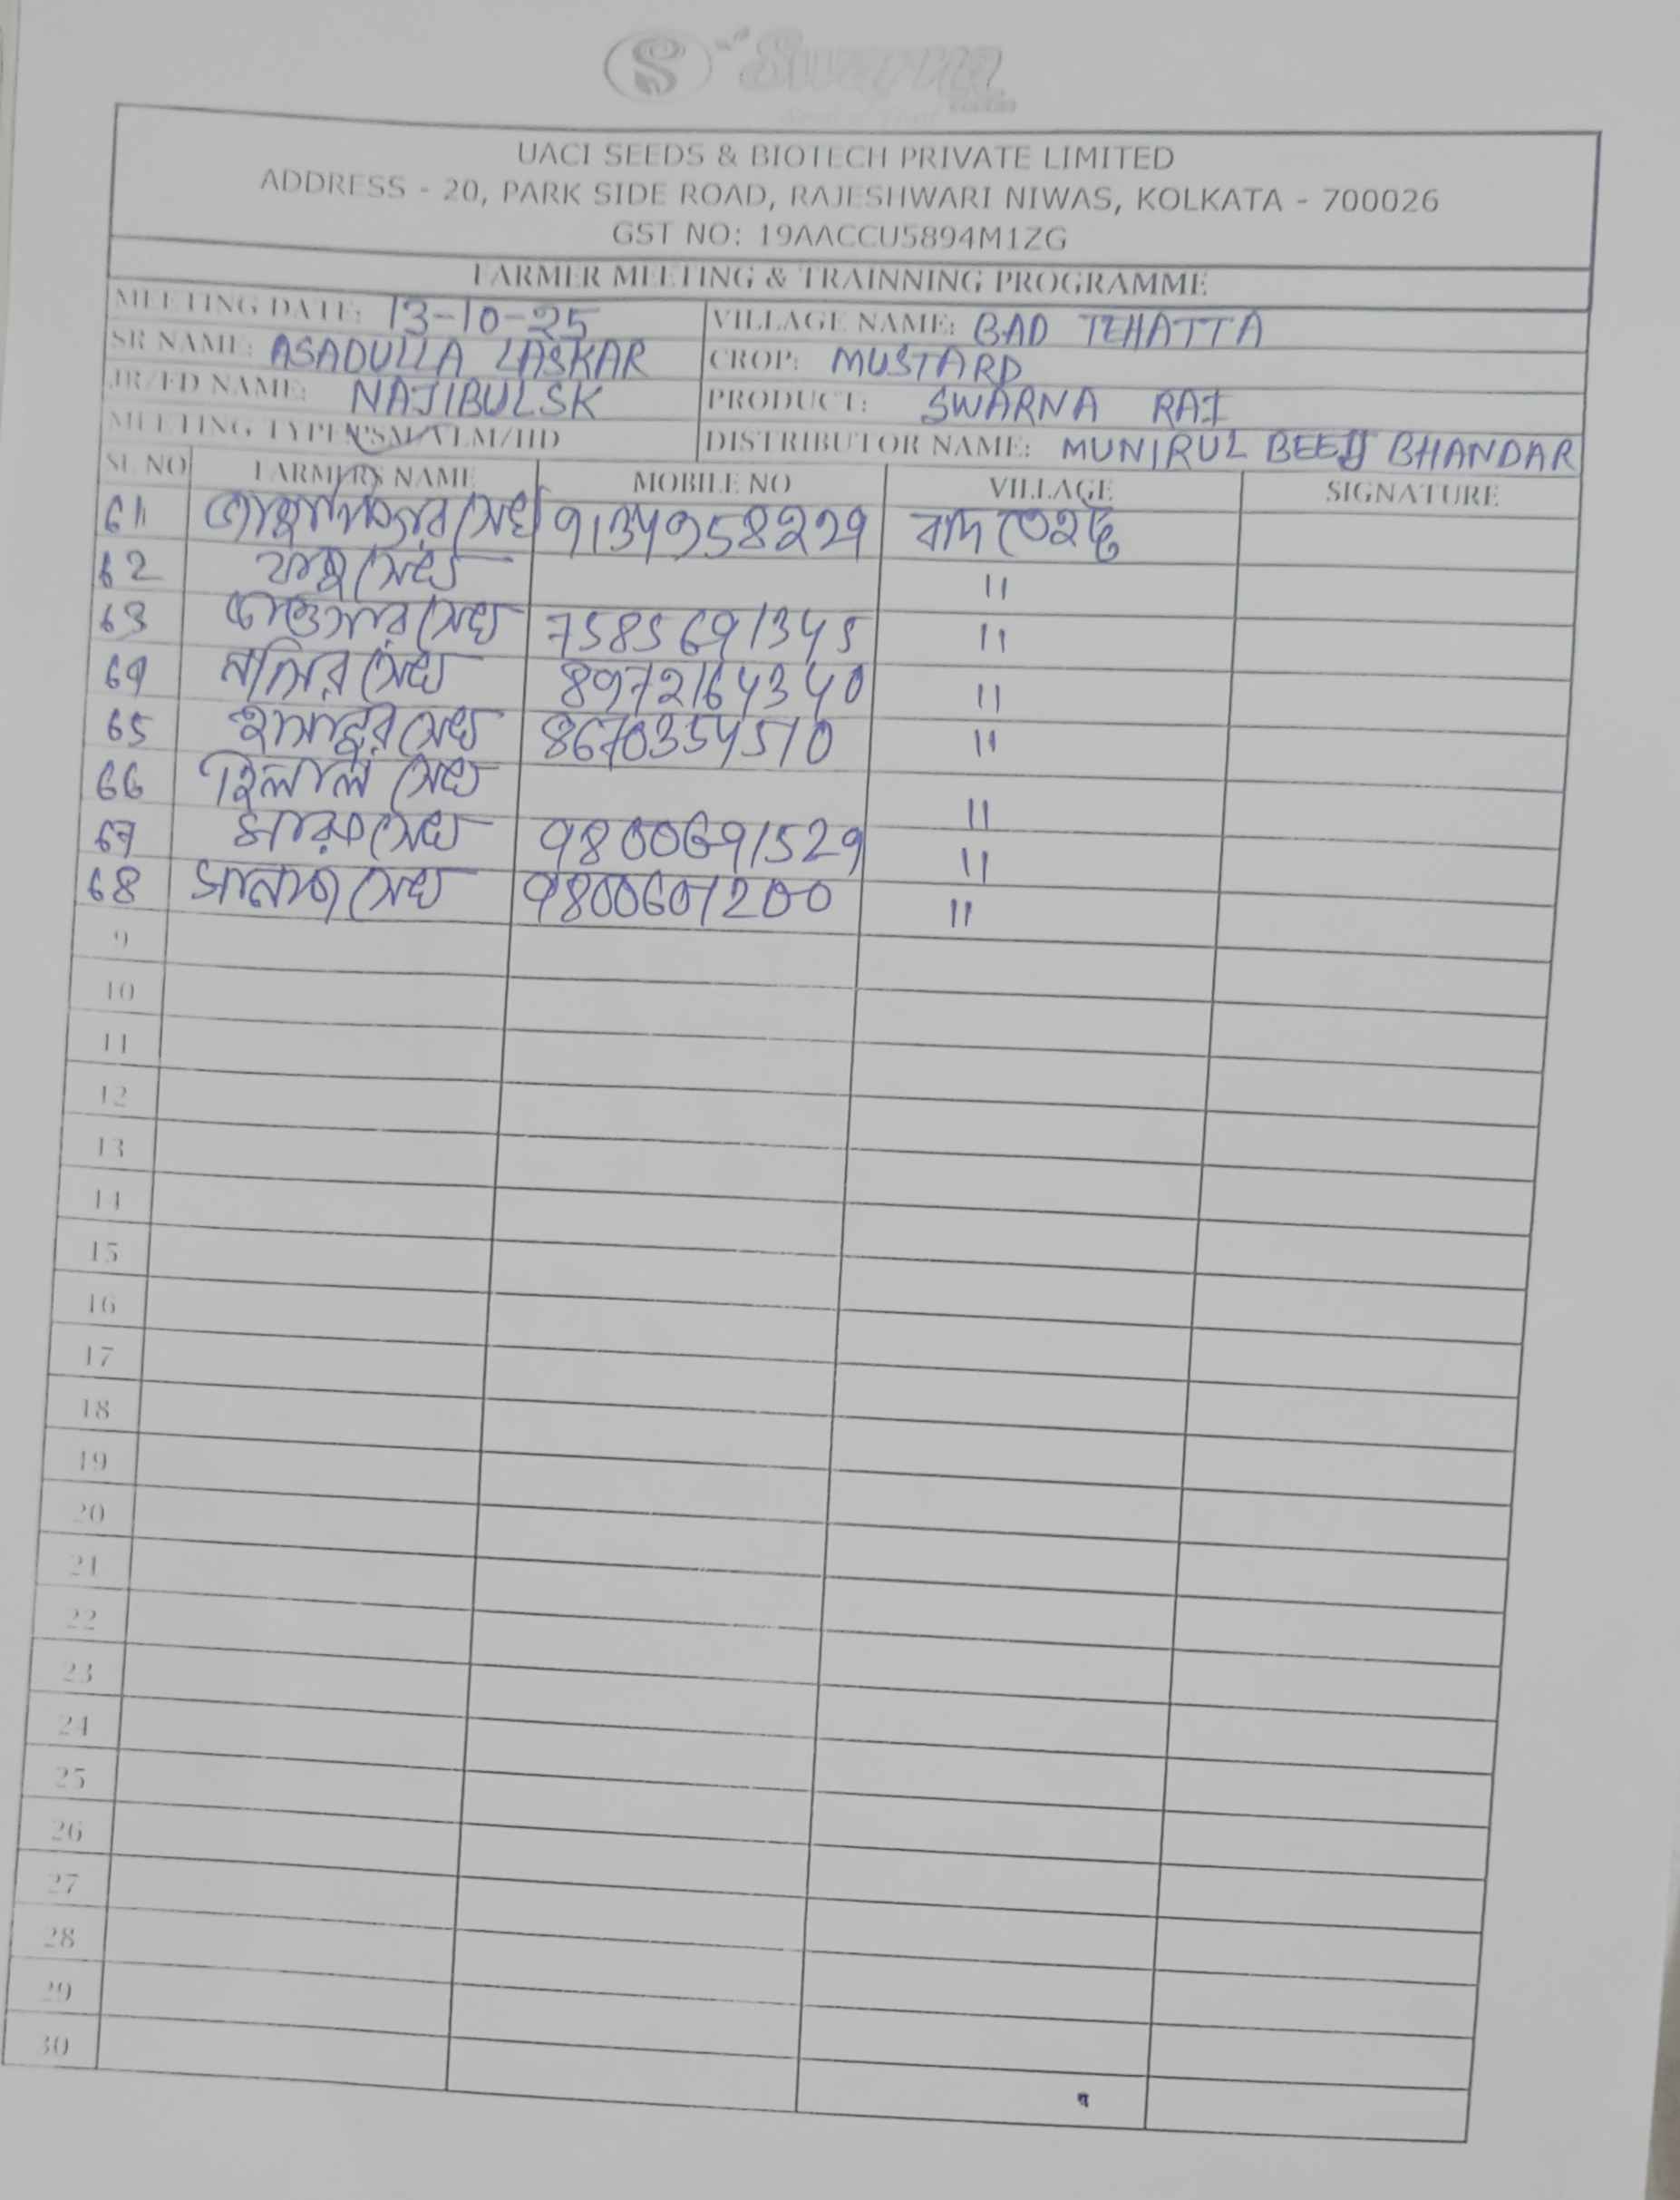 Swarna
UACI SEEDS & BIOTECH PRIVATE LIMITED
ADDRESS - 20, PARK SIDE ROAD, RAJESHWARI NIWAS, KOLKATA - 700026
GST NO: 19AACCU5894M1ZG
FARMER MEETING & TRAINNING PROGRAMME
MEETING DATE: 13-10-25 VILLAGE NAME: BAD TEHATTA
SR NAME: ASADULLA LASKAR CROP: MUSTARD
JR/FD NAME: NAJIBUL SK PRODUCT: SWARNA RAI
MEETING TYPE DISTRIBUTOR NAME: MUNIRUL BEEJ BHANDAR
SL NO FARMERS NAME MOBILE NO VILLAGE SIGNATURE
61 সেখ 9134958229 বাদ তেহট্ট
62 সেখ "
63 সেখ 7585691345 "
64 নাসির সেখ 8972164340 "
65 সেখ 8670354510 "
66 হিলাল সেখ "
67 সেখ 9800691529 "
68 সেখ 9800607200 "
9
10
11
12
13
14
15
16
17
18
19
20
21
22
23
24
25
26
27
28
29
30